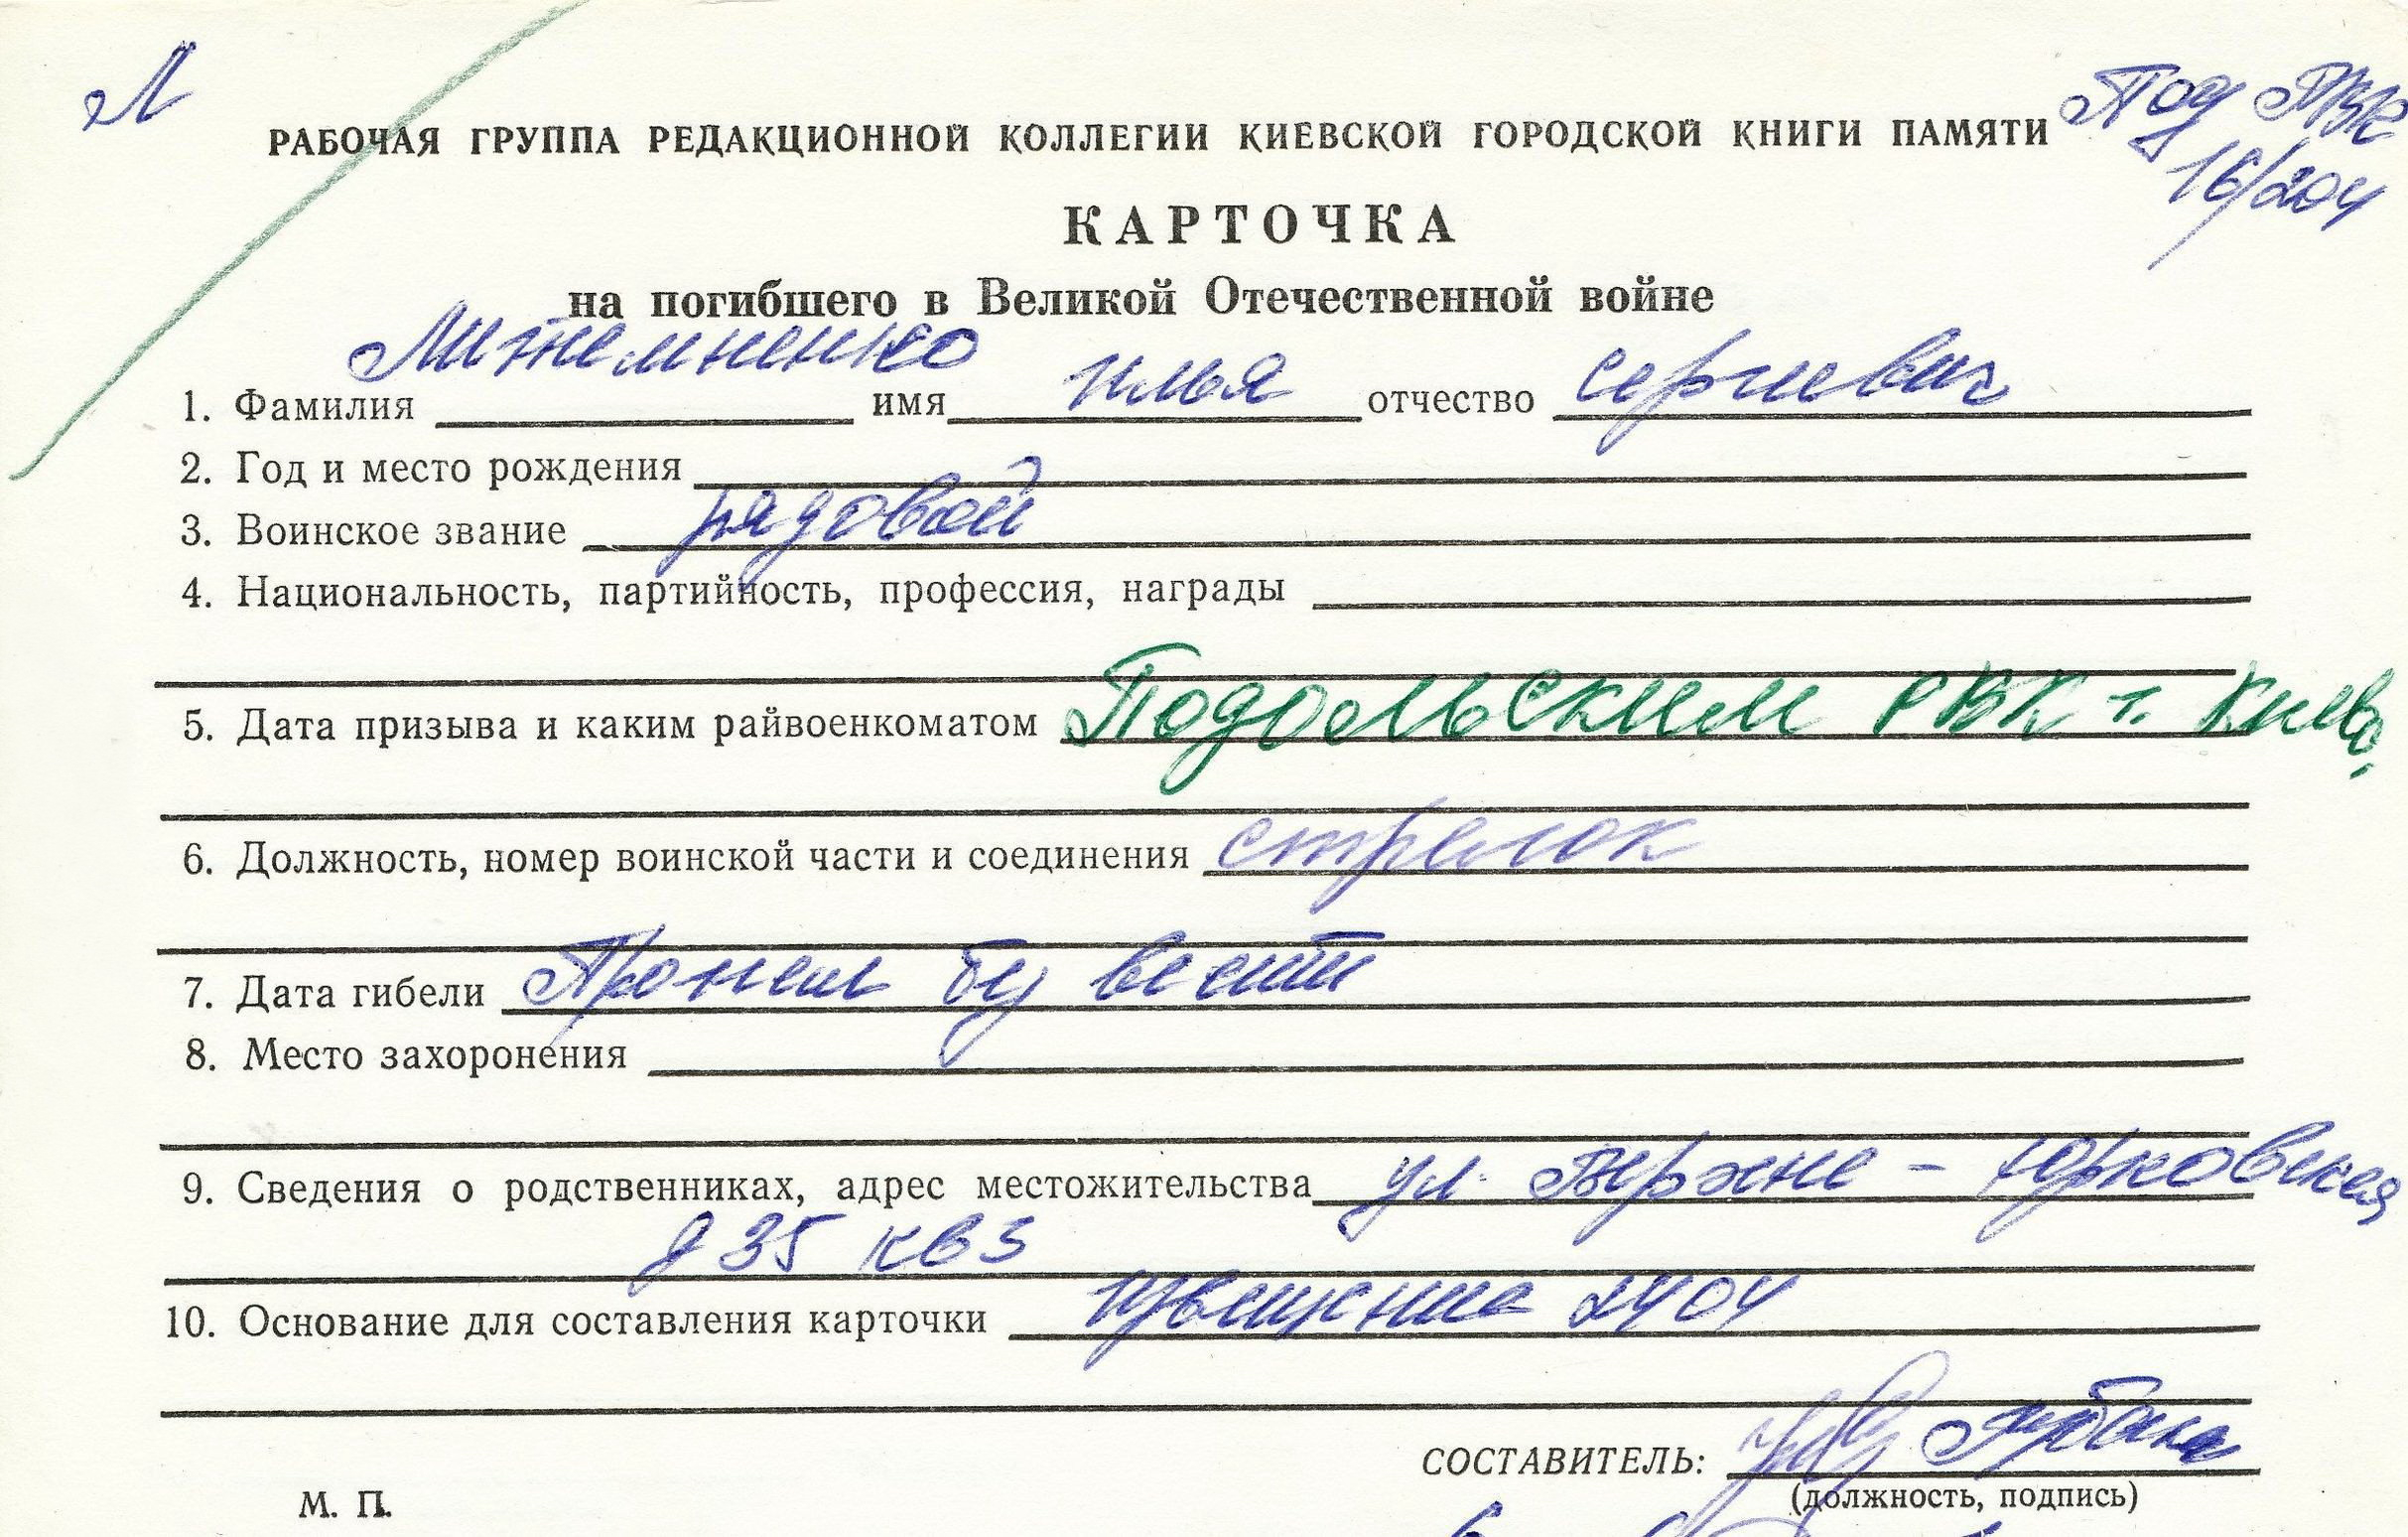 Л
Под РВК
16/204
РАБОЧАЯ ГРУППА РЕДАКЦИОННОЙ КОЛЛЕГИИ КИЕВСКОЙ ГОРОДСКОЙ КНИГИ ПАМЯТИ
КАРТОЧКА
на погибшего в Великой Отечественной войне
1. Фамилия Литемненко имя Илья отчество Сергиевич
2. Год и место рождения
3. Воинское звание рядовой
4. Национальность, партийность, профессия, награды
5. Дата призыва и каким райвоенкоматом Подольским РВК г. Киева.
6. Должность, номер воинской части и соединения стрелок
7. Дата гибели Пропал без вести
8. Место захоронения
9. Сведения о родственниках, адрес местожительства ул. Верхне-Юрковская
д 35 кв 3
10. Основание для составления карточки извещение 2404
СОСТАВИТЕЛЬ:
(должность, подпись)
М. П.